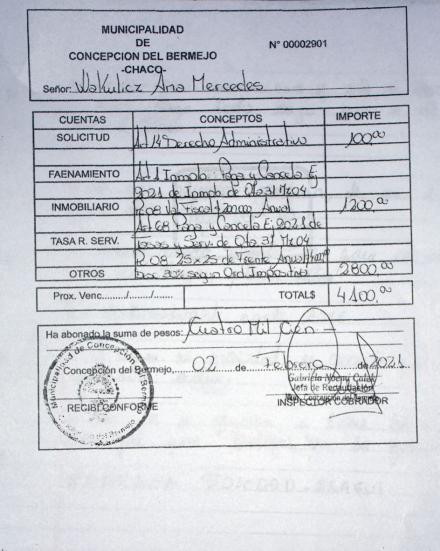 MUNICIPALIDAD
DE
CONCEPCION DEL BERMEJO
-CHACO-
N° 00002901
Señor: Wakulicz Ana Mercedes
CUENTAS CONCEPTOS IMPORTE
SOLICITUD Art 14 Derecho Administrativo 100,00
FAENAMIENTO Art 1 Inmob: Paga y Cancela Ej
2021 de Inmob de Qta 31 Mz 04
INMOBILIARIO P.08 Val Fiscal $ 20000 Anual 1200,00
Art 68 Paga y Cancela Ej 2021 de
TASA R. SERV. Tasas y Serv. de Qta 31 Mz 04
P. 08 25x25 de Frente Anual
OTROS Desc 30% según Ord. Impositiva 2800,00
Prox. Venc......../......./....... TOTAL$ 4100,00
Ha abonado la suma de pesos: Cuatro Mil Cien
Concepción del Bermejo, 02 de Febrero de 2021
Jefa de Recaudación
Concepción del Bermejo
RECIBI CONFORME INSPECTOR COBRADOR
Municipalidad de Concepción del Bermejo